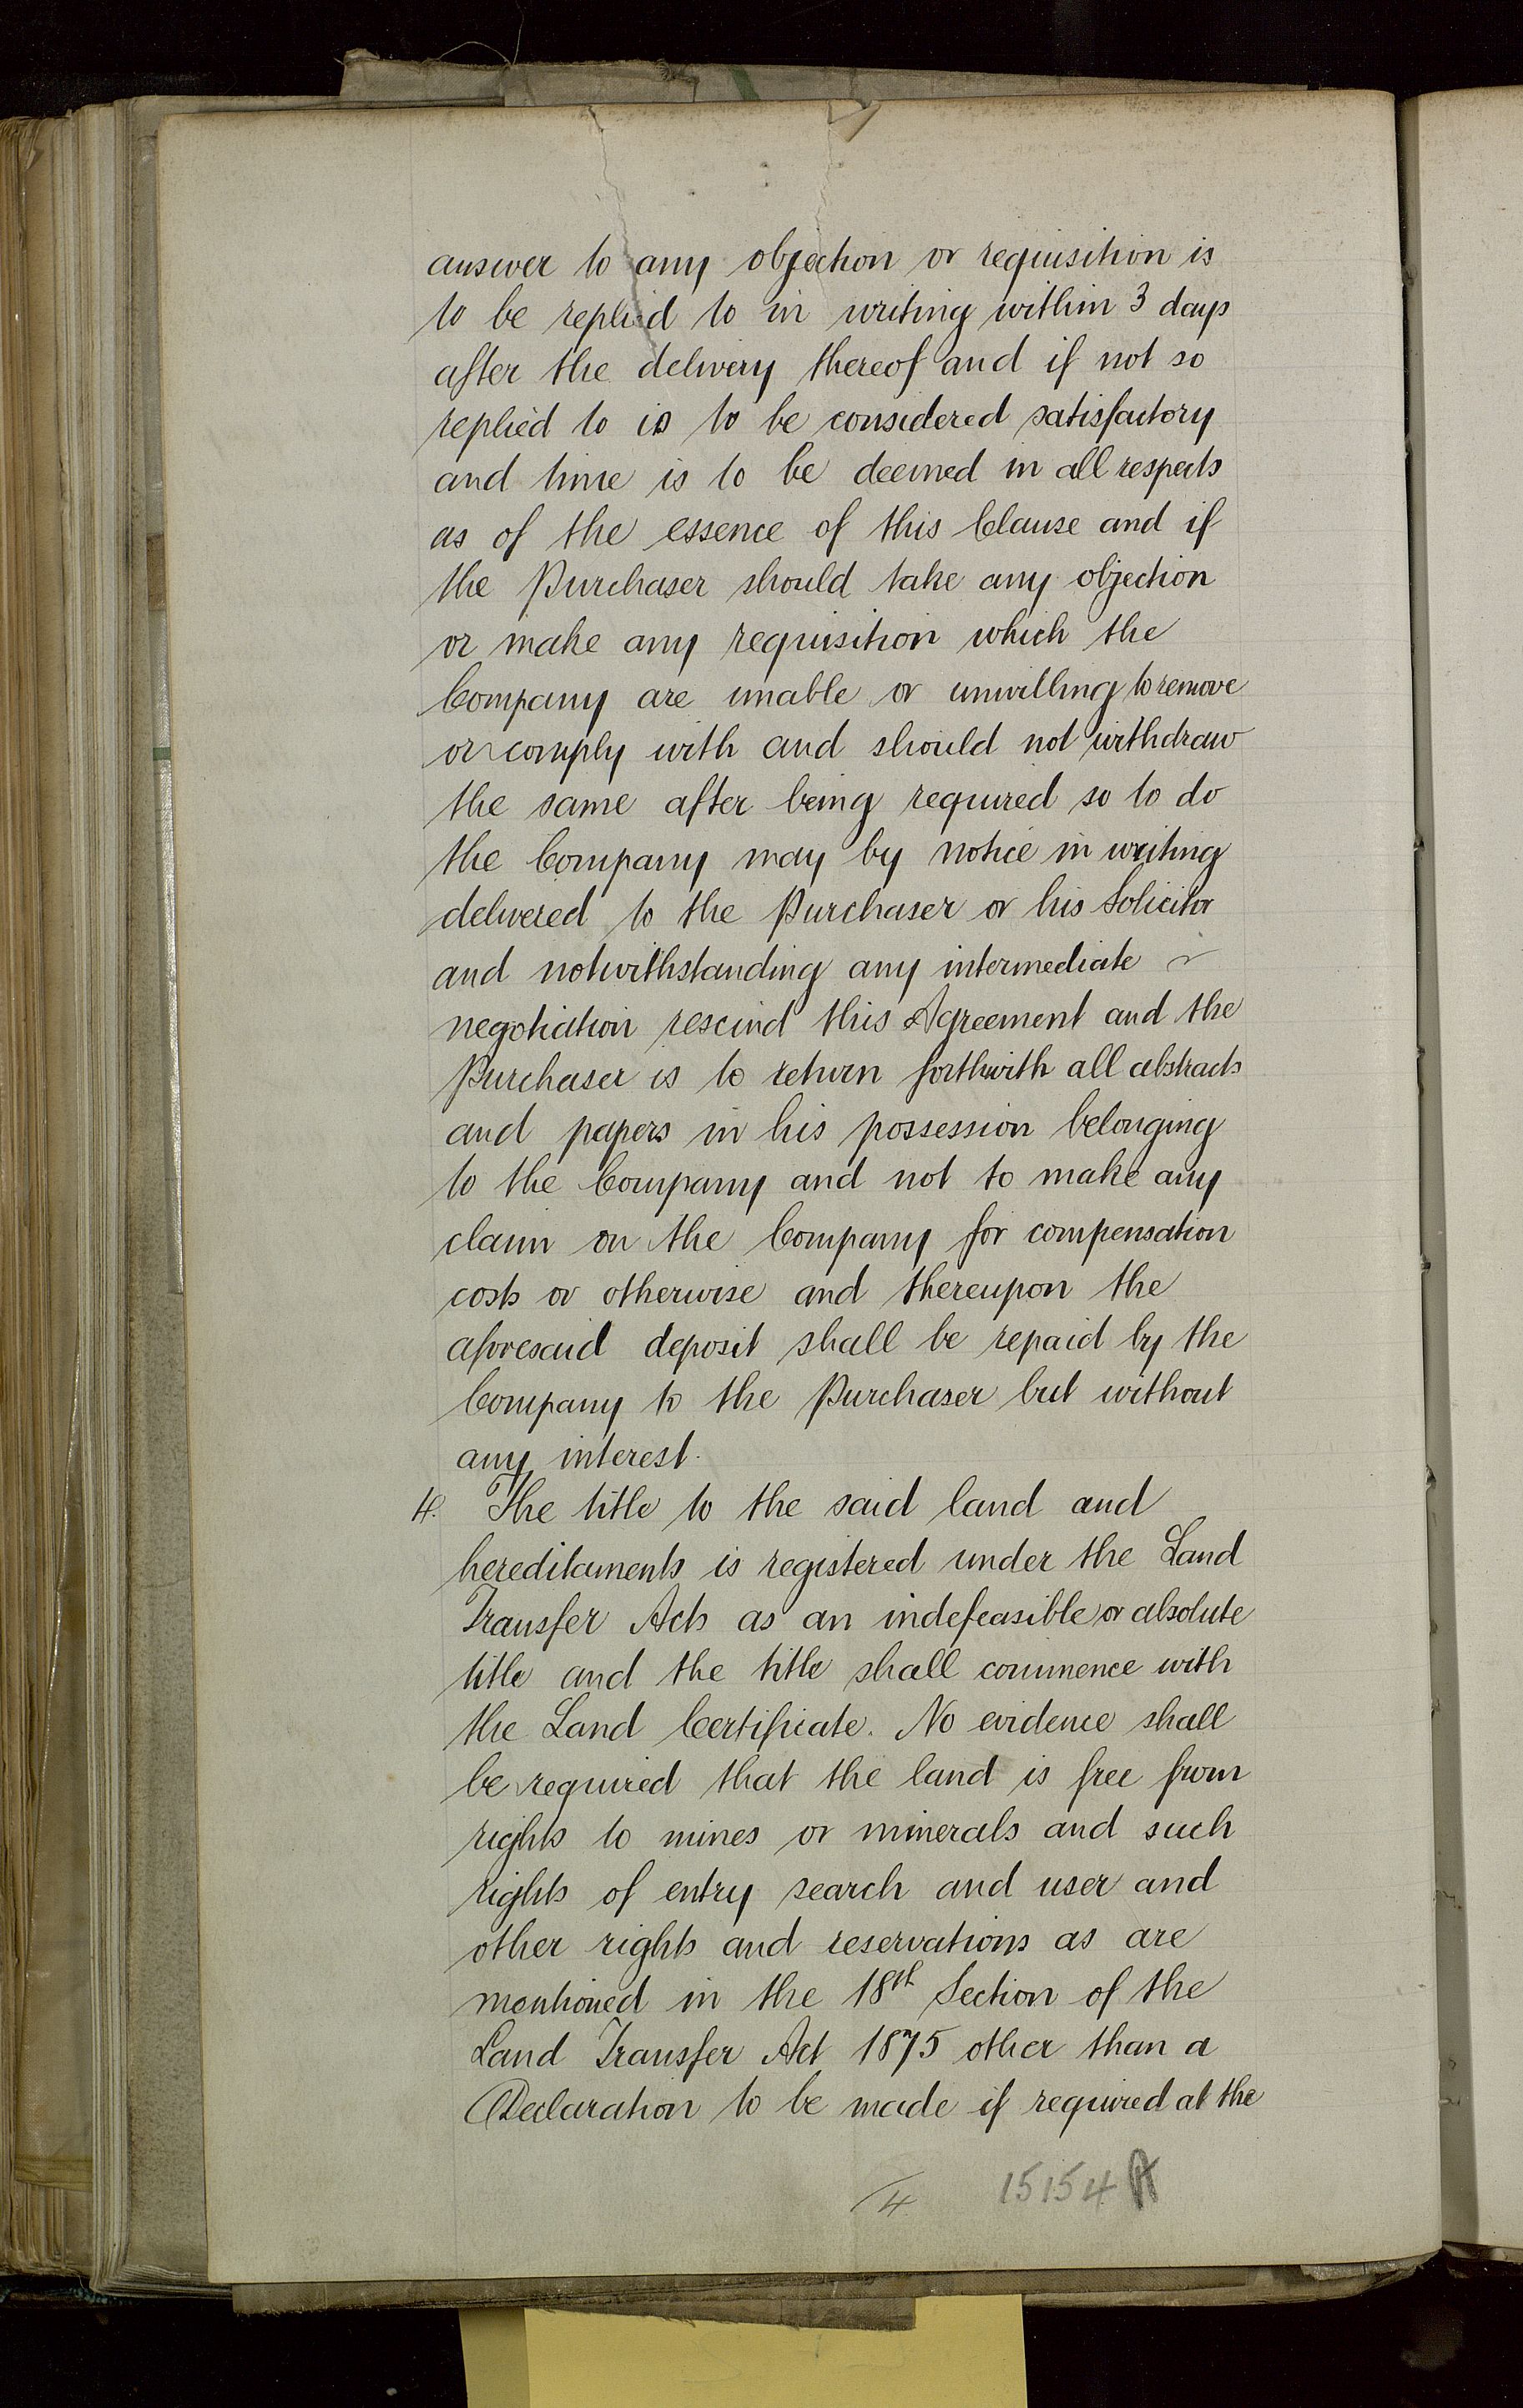 answer to any objection or requisition is
to be replied to in writing within 3 days
after the delivery thereof and if not so
replied to is to be considered satisfactory
and time is to be deemed in all respects
as of the essence of this Clause and if
the Purchaser should take any objection
or make any requisition which the
Company are unable or unwilling to remove
or comply with and should not withdraw
the same after being required so to do
the Company may by notice in writing
delivered to the Purchaser or his Solicitor
and notwithstanding any intermediate
negotiation rescind this Agreement and the
Purchaser is to return forthwith all abstracts
and papers in his possession belonging
to the Company and not to make any
claim on the Company for compensation
costs or otherwise and thereupon the
aforesaid deposit shall be repaid by the
Company to the Purchaser but without
any interest.
4. The title to the said land and
hereditaments is registered under the Land
Transfer Acts as an indefeasible or absolute
title and the title shall commence with
the Land Certificate. No evidence shall
be required that the land is free from
rights to mines or minerals and such
rights of entry search and user and
other rights and reservations as are
mentioned in the 18th Section of the
Land Transfer Act 1875 other than a
Declaration to be made if required at the
/4 15154 A